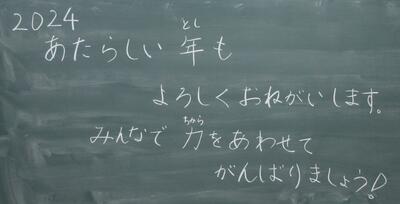 2024
とし
あたらしい 年も
よろしくおねがいします。
ちから
みんなで 力をあわせて
がんばりましょう!